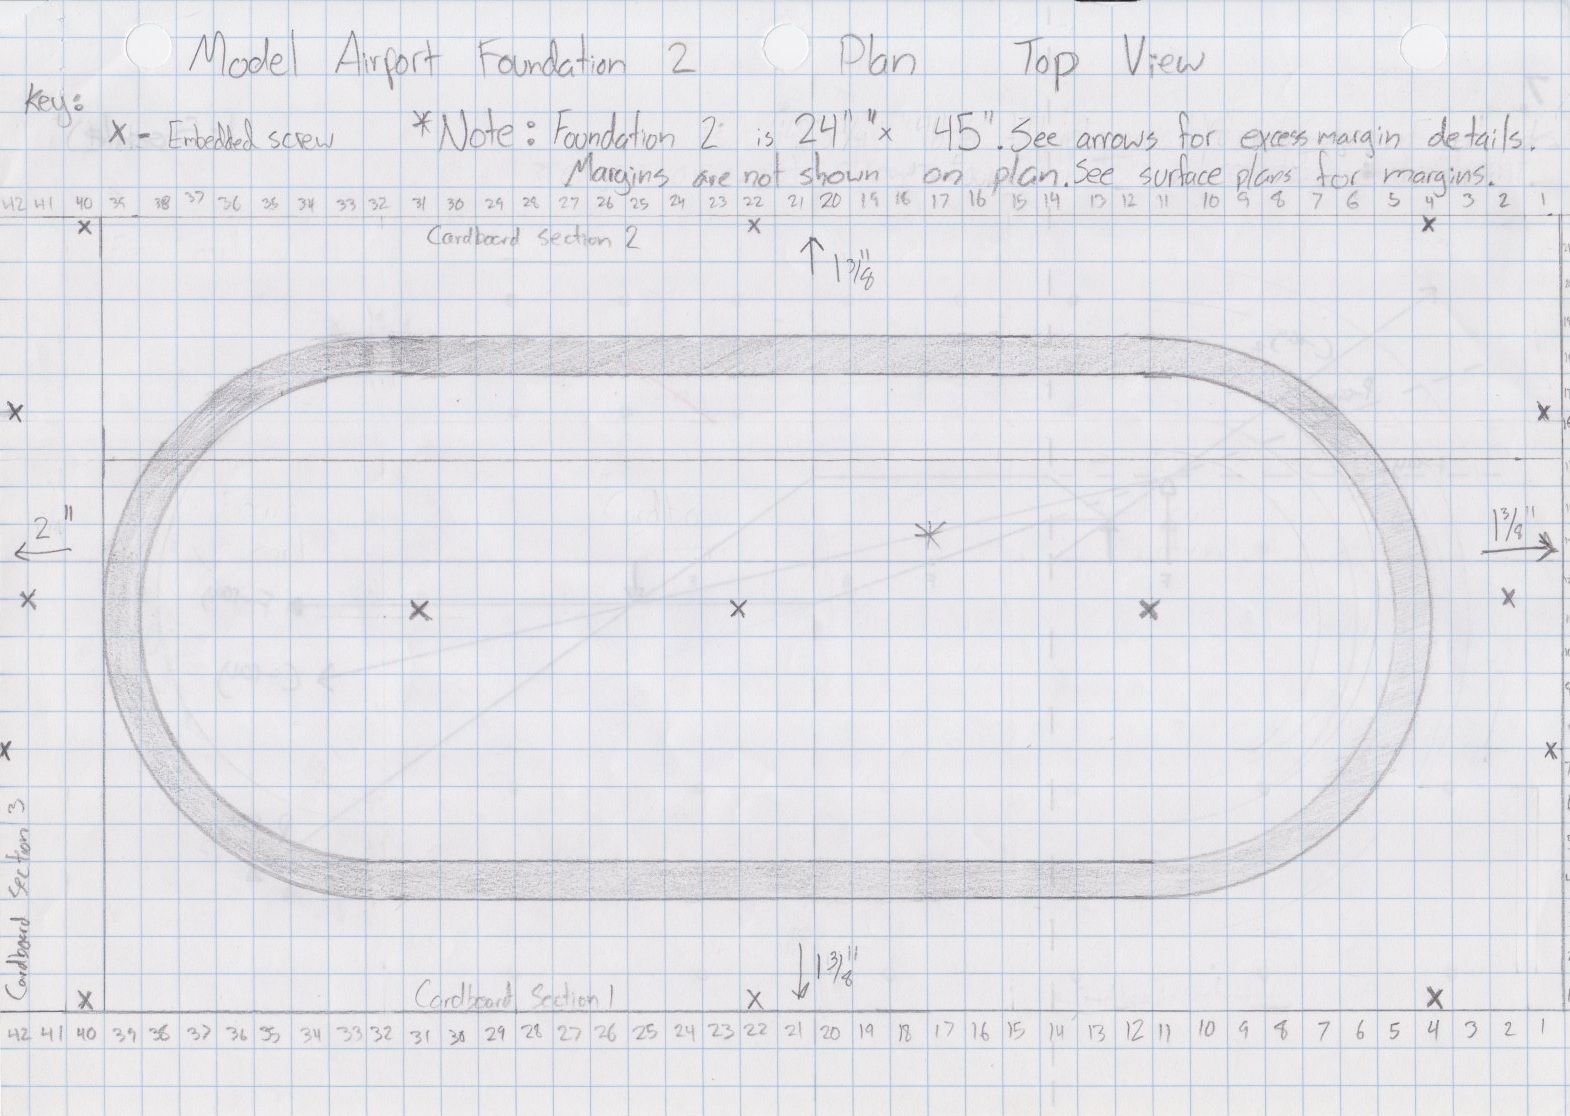 Model Airport Foundation 2 Plan Top View
Key:
X - Embedded screw
*Note: Foundation 2 is 24" " x 45". See arrows for excess margin details.
Margins are not shown on plan. See surface plans for margins.
42 41 40 39 38 37 36 35 34 33 32 31 30 29 28 27 26 25 24 23 22 21 20 19 18 17 16 15 14 13 12 11 10 9 8 7 6 5 4 3 2 1
Cardboard Section 2
1 3/8"
2"
1 3/8"
Cardboard Section 3
1 3/8"
Cardboard Section 1
42 41 40 39 38 37 36 35 34 33 32 31 30 29 28 27 26 25 24 23 22 21 20 19 18 17 16 15 14 13 12 11 10 9 8 7 6 5 4 3 2 1